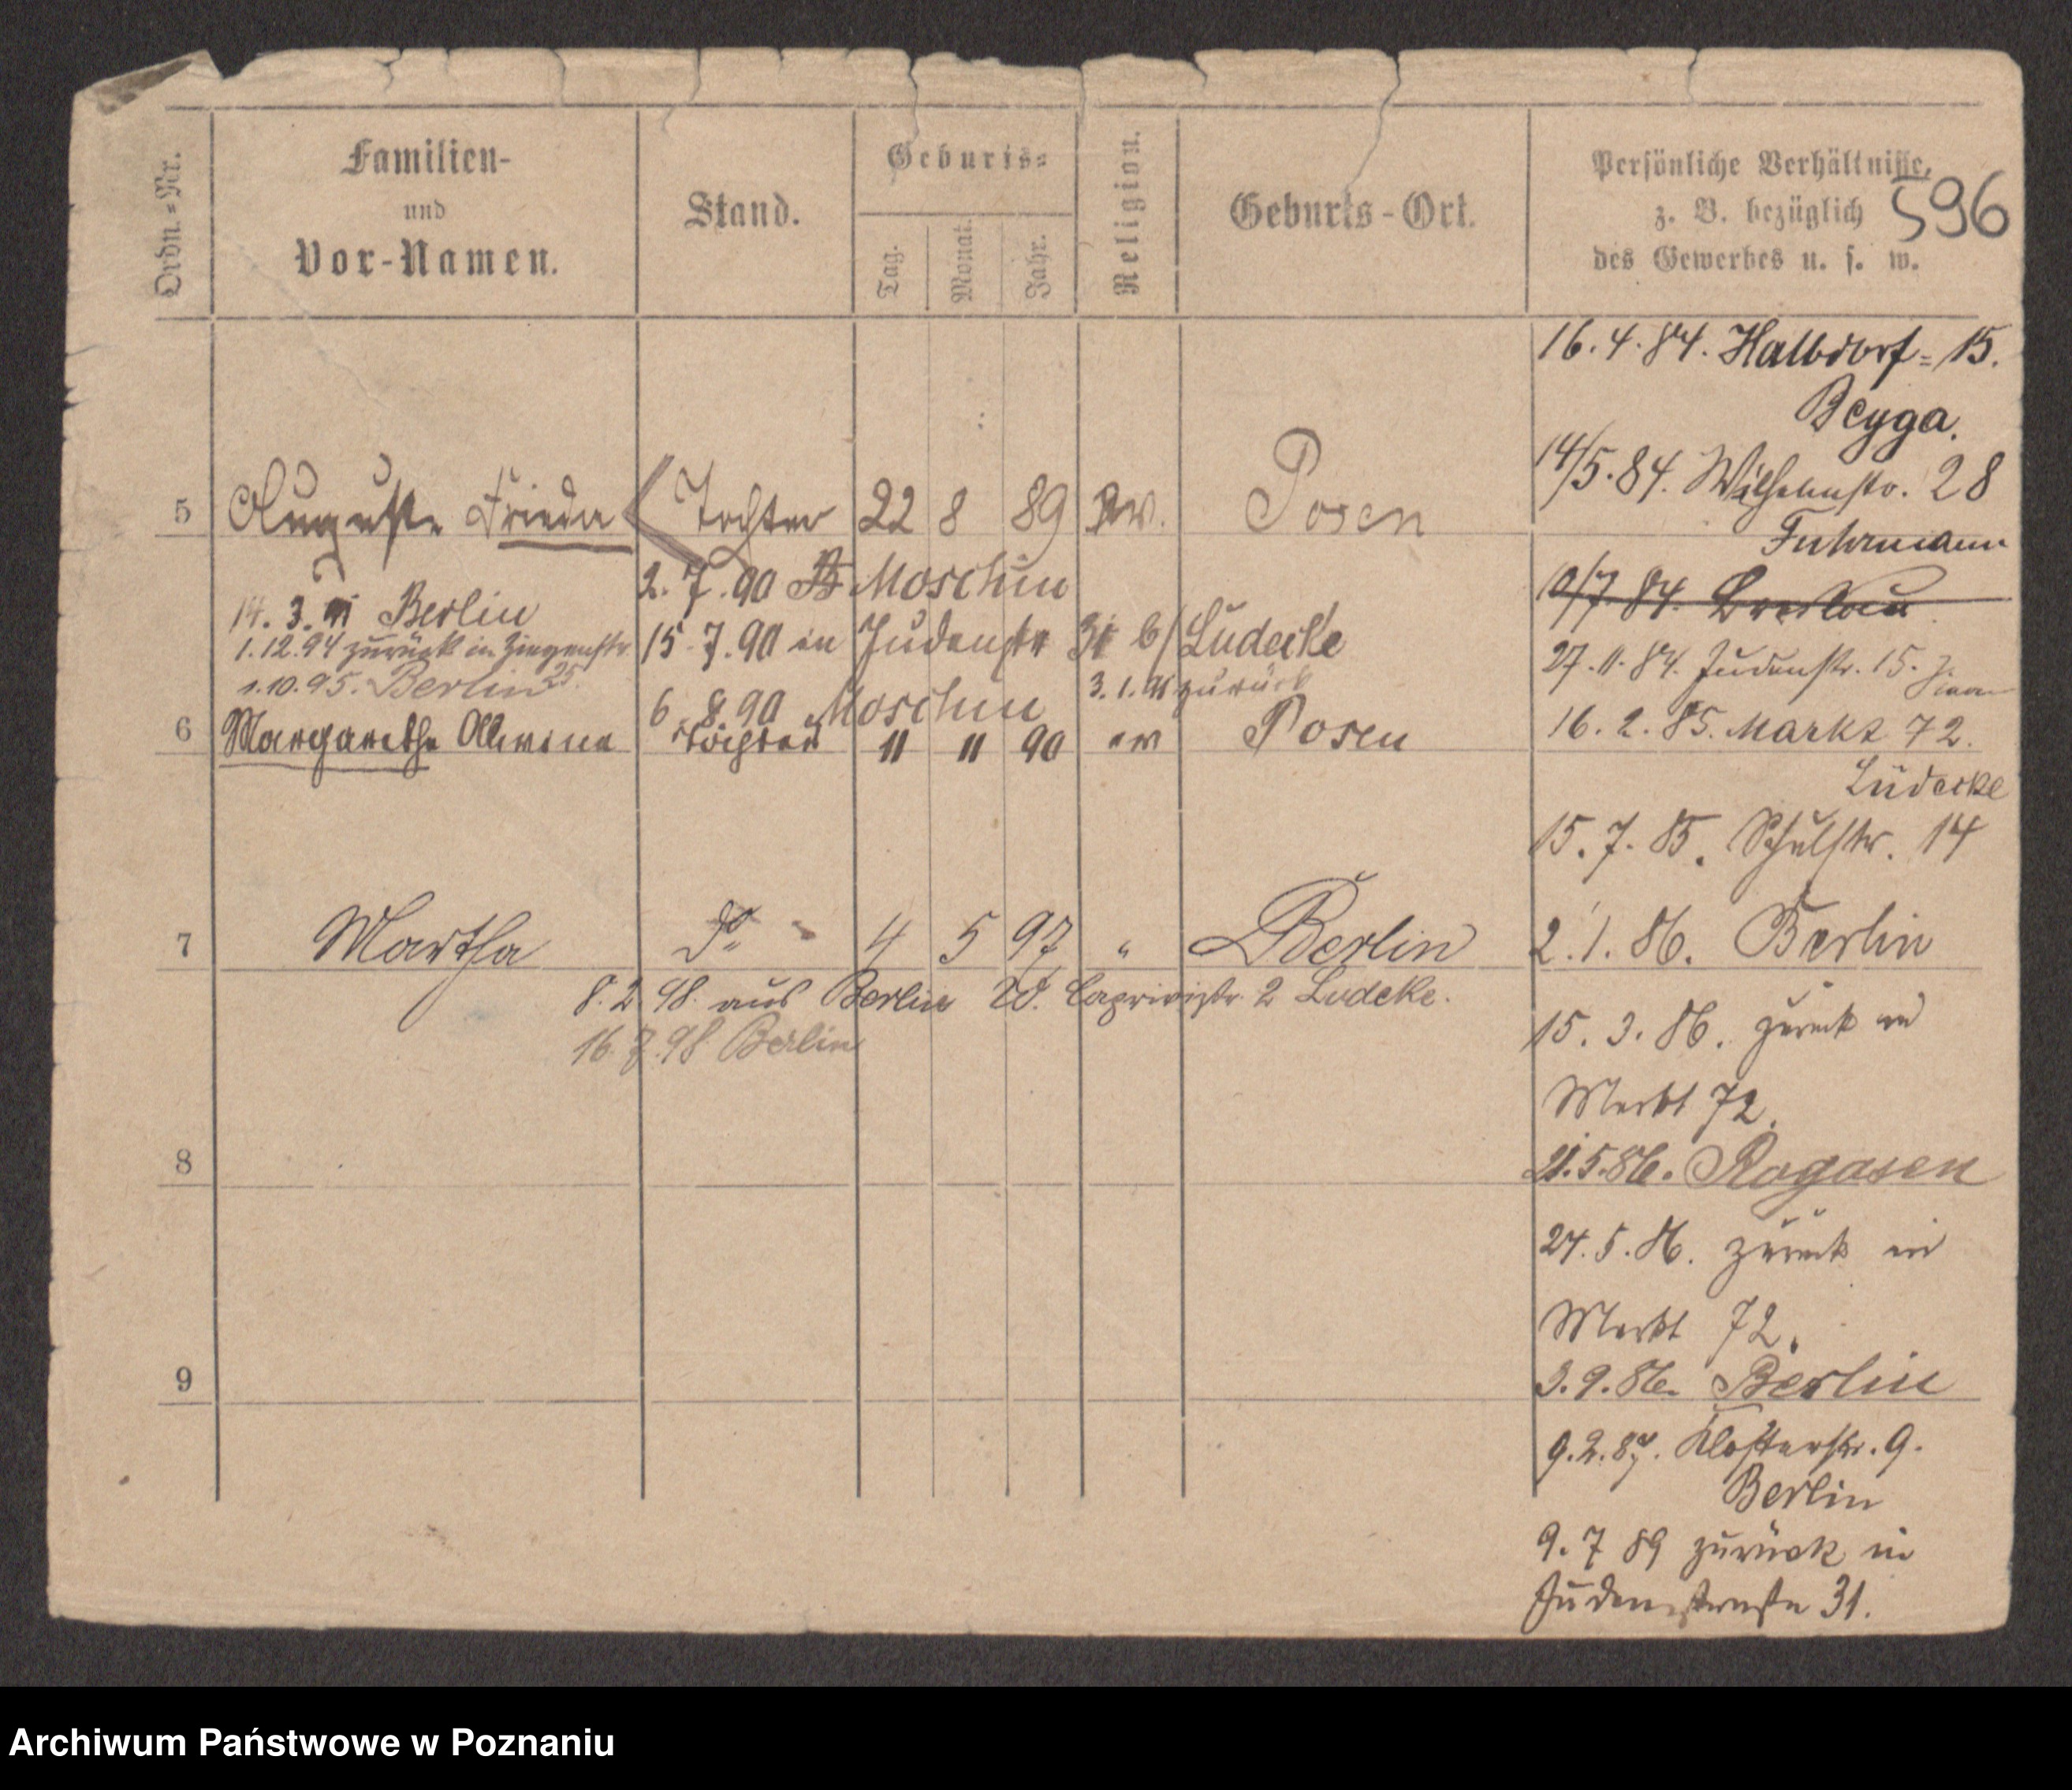 Ordn.-Nr.
Familien-
und
Vor-Namen.
Stand.
Geburts-
Tag.
Monat.
Jahr.
Religion.
Geburts-Ort.
Persönliche Verhältnisse,
z. B. bezüglich
des Gewerbes u. s. w.
596
5 Auguste Frieda Tochter 22 8 89 ev. Posen
2.7.90 Moschin
14.3.91 Berlin
15.7.90 in Judenstr 31 b/ Lüdecke
1.12.94 zurück in Ziegenstr 25.
1.10.95. Berlin
3.1.91 zurück
6.8.90 Moschin
6 Margarethe Alwine Tochter 11 11 90 ev Posen
7 Martha do 4 5 97 " Berlin
8.2.98. aus Berlin W. Caprivistr. 2 Lüdcke.
16.7.98 Berlin
8
9
16.4.84. Halbdorf=15.
Beyga.
14/5.84. Wilhelmstr. 28
Fuhrmann
10/7.84. Breslau.
27.11.84. Judenstr. 15.
16.2.85. Markt 72.
Lüdecke
15.7.85. Schulstr. 14
2.1.86. Berlin
15.3.86. zurück in
Markt 72.
21.5.86. Rogasen
24.5.86. zurück in
Markt 72.
3.9.86. Berlin
9.2.87. Klosterstr. 9.
Berlin
9.7 89 zurück in
Judenstraße 31.
Archiwum Państwowe w Poznaniu